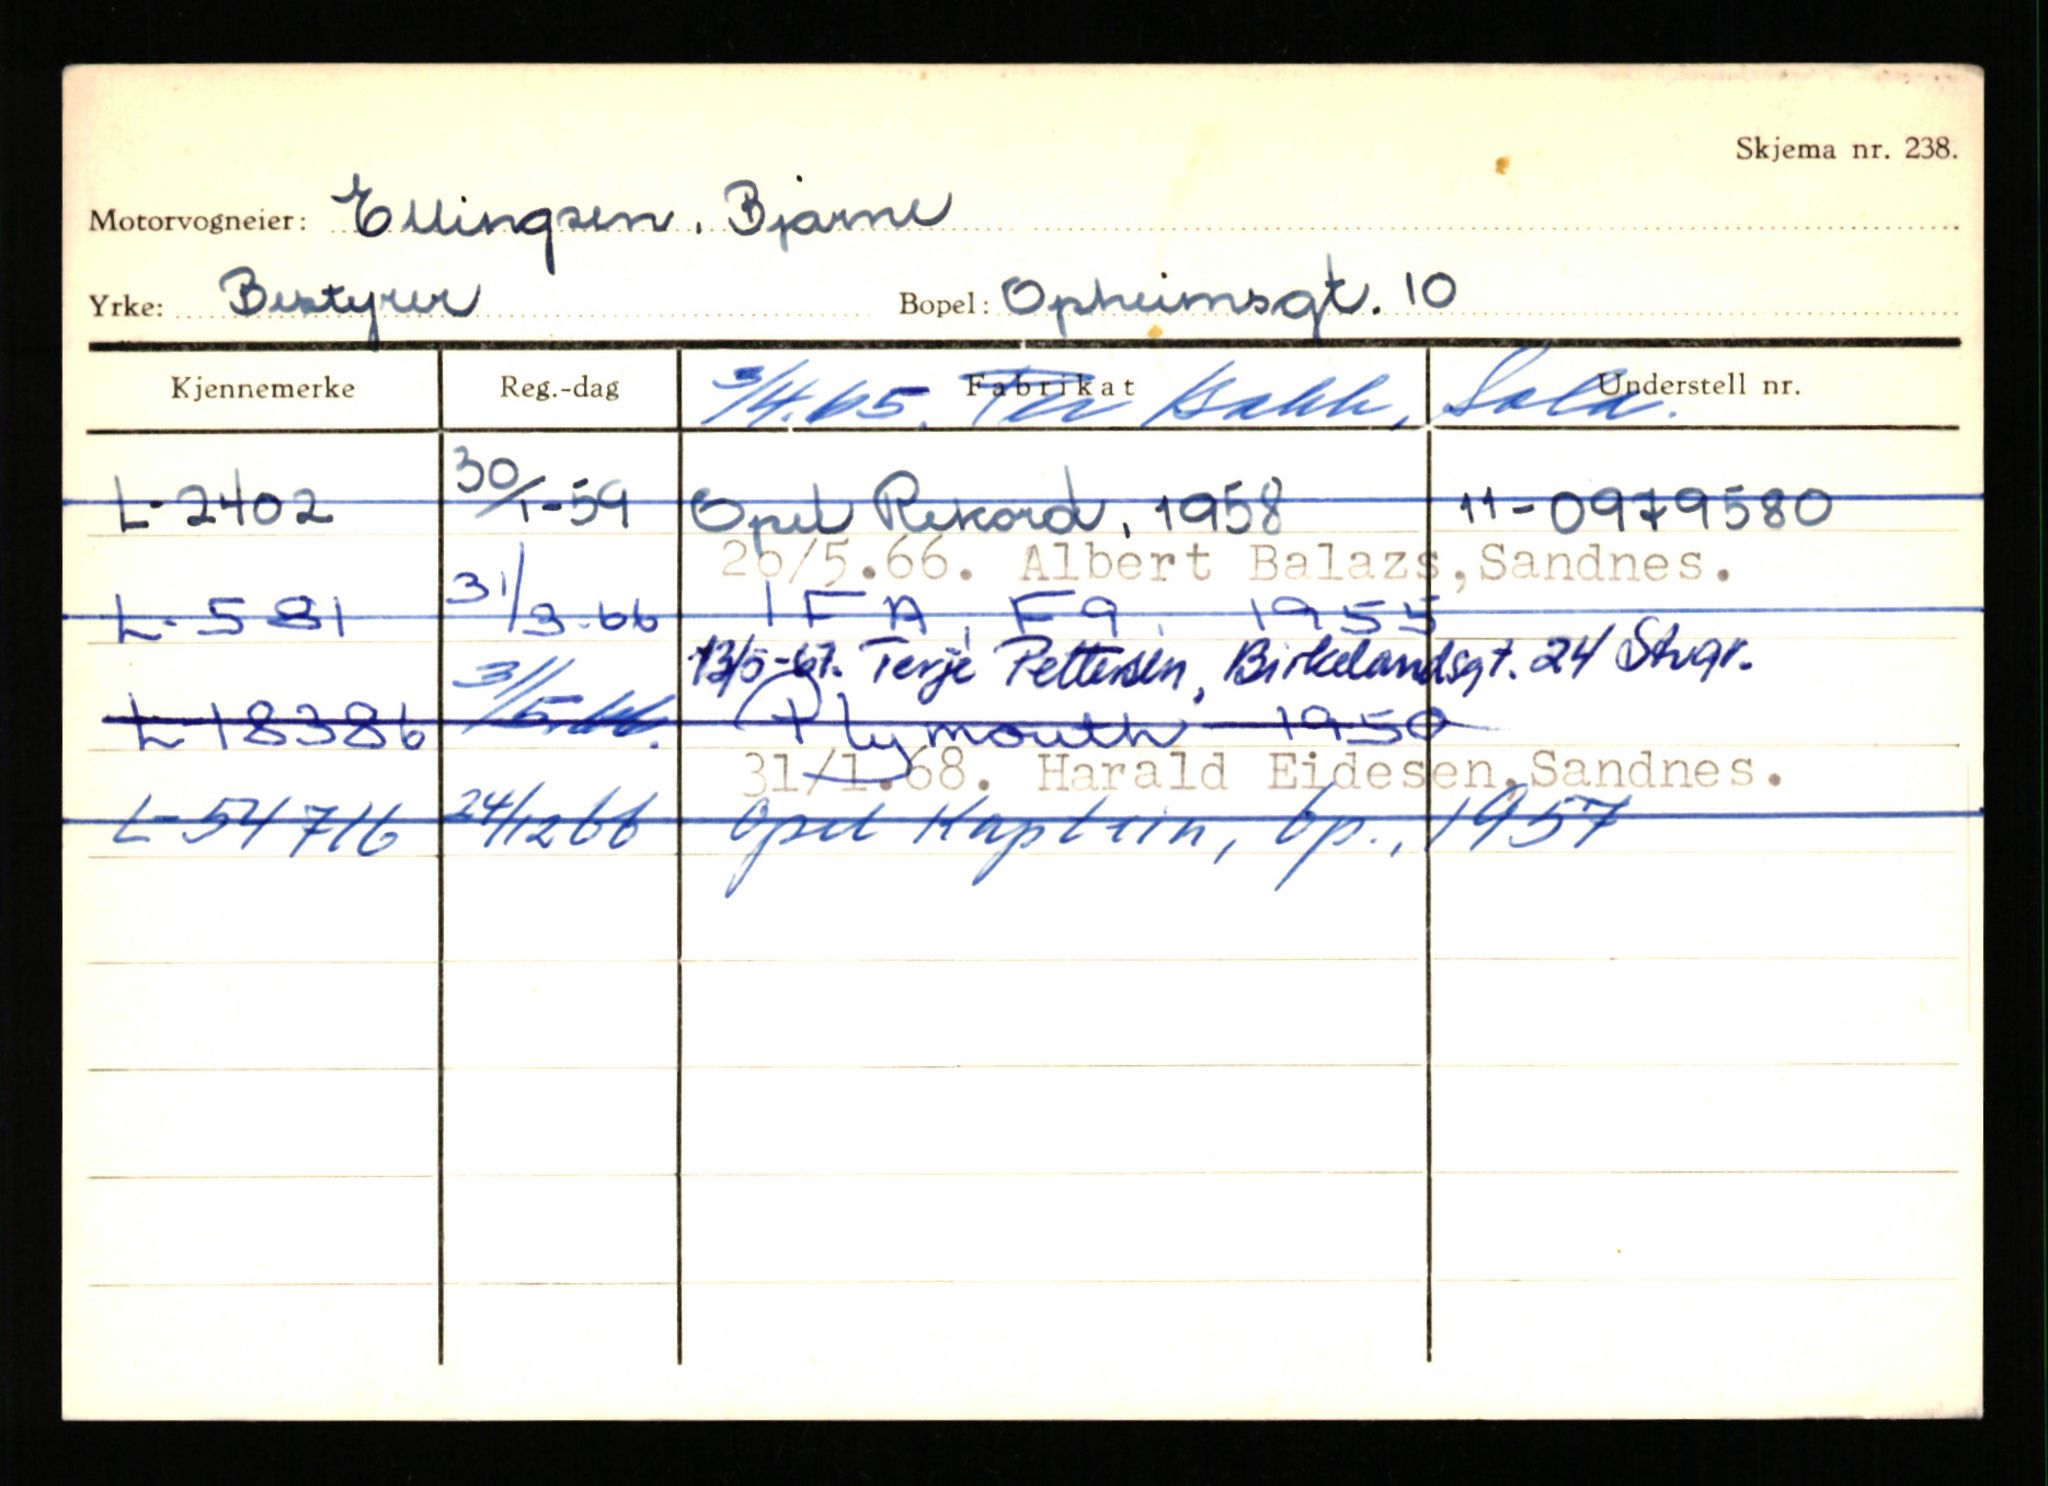 Skjema nr. 238.
Motorvogneier: Ellingsen, Bjarne
Yrke: Bestyrer Bopel: Opheimsgt. 10
Kjennemerke Reg.-dag Fabrikat Understell nr.
3/4.65. Per Bakk, Sola.
L-2402 30/1-59 Opel Rekord, 1958 11-0979580
26/5.66. Albert Balazs, Sandnes.
L-581 31/3-66 IFA, F9, 1955
13/5-67. Terje Pettersen, Birkelandsgt. 24 Stvgr.
L-18386 31/5.66. Plymouth 1950
31/1.68. Harald Eidesen, Sandnes.
L-54716 24/12 66 Opel Kaptein, 6p., 1957